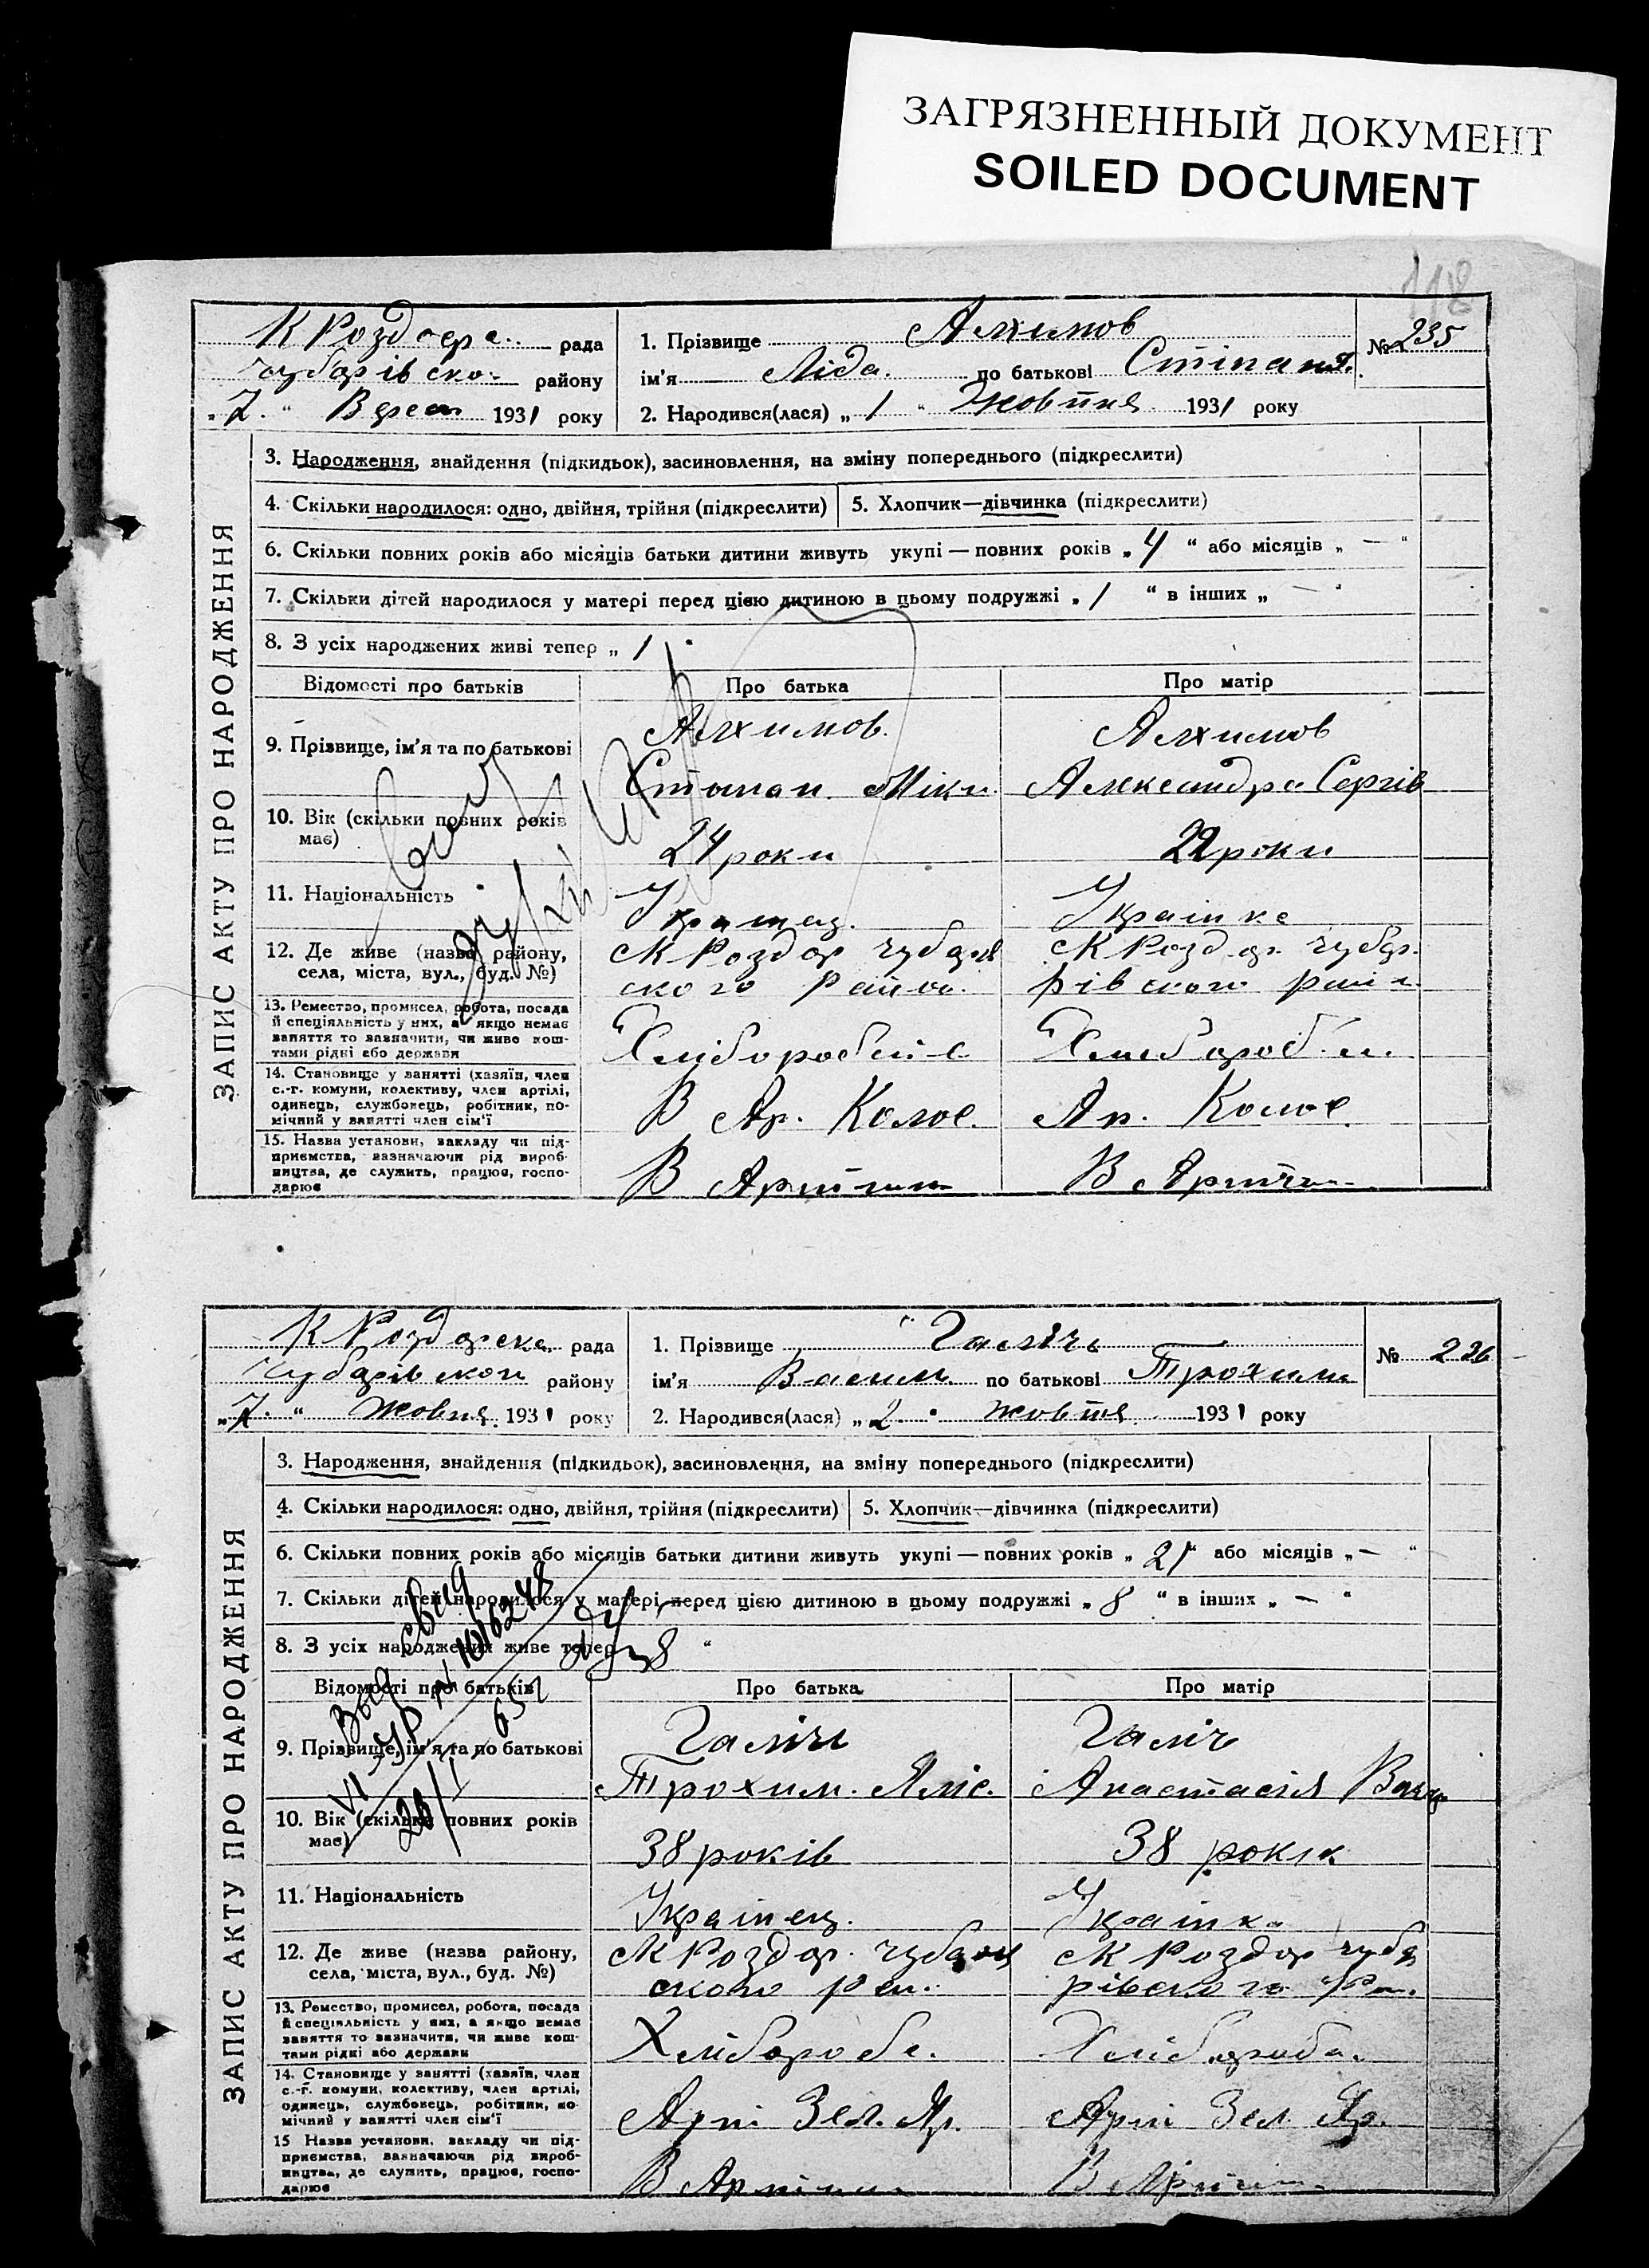 ЗАГРЯЗНЕННЫЙ ДОКУМЕНТ
SOILED DOCUMENT
118
К Роздорс. рада
Чубарівско. району
„7.“ Верес 1931 року
1. Прізвище Алхимов
№ 235
ім'я Ліда. по батькові Степан.
2. Народився(лася) „1“ Жовтня 1931 року
ЗАПИС АКТУ ПРО НАРОДЖЕННЯ
3. Народження, знайдення (підкидьок), засиновлення, на зміну попереднього (підкреслити)
4. Скільки народилося: одно, двійня, трійня (підкреслити)
5. Хлопчик—дівчинка (підкреслити)
6. Скільки повних років або місяців батьки дитини живуть укупі — повних років „4“ або місяців „—“
7. Скільки дітей народилося у матері перед цією дитиною в цьому подружжі „1“ в інших „—“
8. З усіх народжених живі тепер „1
Відомості про батьків Про батька Про матір
9. Прізвище, ім'я та по батькові
Алхимов. Алхимов
Степан. Мики. Александра Сергів
10. Вік (скільки повних років має)
24 роки 22 роки
11. Національність
Украинец. Українка
12. Де живе (назва району, села, міста, вул., буд. №)
с К Роздор Чубарів с К Роздор. Чуба
ского Район. рівского раин.
13. Ремество, промисел, робота, посада
й спеціяльність у них, а якщо немає
заняття то зазначити, чи живе кош-
тами рідні або держави
Хлібороб Хлібороб.
14. Становище у занятті (хазяїн, член
с.-г. комуни, колективу, член артілі,
одинець, службовець, робітник, по-
мічний у занятті член сім'ї
В Ар. Колос. Ар. Колос.
15. Назва установи, закладу чи під-
приємства, зазначаючи рід вироб-
ництва, де служить, працює, госпо-
дарює
В Артіли В Артіли
К Роздорска рада
Чубарівского району
„7.“ Жовтня. 1931 року
1. Прізвище Галіч
№ 236
ім'я Василь по батькові Трохим
2. Народився(лася) „2“ жовтня 1931 року
ЗАПИС АКТУ ПРО НАРОДЖЕННЯ
3. Народження, знайдення (підкидьок), засиновлення, на зміну попереднього (підкреслити)
4. Скільки народилося: одно, двійня, трійня (підкреслити)
5. Хлопчик—дівчинка (підкреслити)
6. Скільки повних років або місяців батьки дитини живуть укупі — повних років „21“ або місяців „—“
7. Скільки дітей народилося у матері перед цією дитиною в цьому подружжі „8“ в інших „—“
8. З усіх народжених живе тепер „8“
Выд свид
VI-УР № 1016248
Відомості про батьків Про батька Про матір
9. Прізвище, ім'я та по батькові
Галіч Галіч
Трохим. Анастасія
10. Вік (скільки повних років має)
38 років 38 років
11. Національність
Українец. Українка
12. Де живе (назва району, села, міста, вул., буд. №)
с К Роздор. Чубарів с К Роздор Чуба
ского рай. рівского Ра.
13. Ремество, промисел, робота, посада
й спеціяльність у них, а якщо немає
заняття то зазначити, чи живе кош-
тами рідні або держави
Хлібороб. Хлібороб.
14. Становище у занятті (хазяїн, член
с.-г. комуни, колективу, член артілі,
одинець, службовець, робітник, по-
мічний у занятті член сім'ї
Арті Зел. Яр. Арті Зел. Яр.
15 Назва установи, закладу чи під-
приємства, зазначаючи рід вироб-
ництва, де служить, працює, госпо-
дарює
В Артіли В Артіли